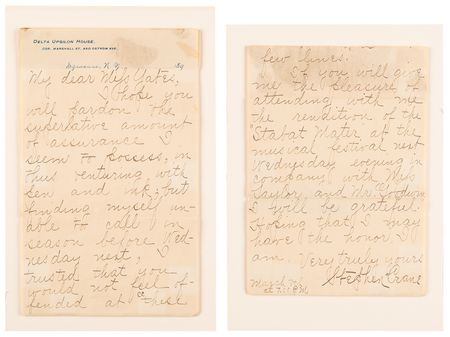 DELTA UPSILON HOUSE.
COR. MARSHALL ST. AND OSTROM AVE.
Syracuse, N. Y. 189
My dear Miss Yates,
I hope you
will pardon the
superlative amount
of assurance I
seem to possess, in
thus venturing with
pen and ink, but
finding myself un-
able to call in
season before Wed-
nesday next, I
trusted that you
would not feel of-
fended at these
few lines.
If you will give
me the pleasure of
attending with me
the rendition of the
"Stabat Mater" at the
musical festival next
Wednesday evening in
company with Miss
Saylor and Mr.
I will be grateful.
Hoping that I may
have the honor, I
am. Very truly yours
Stephen Crane